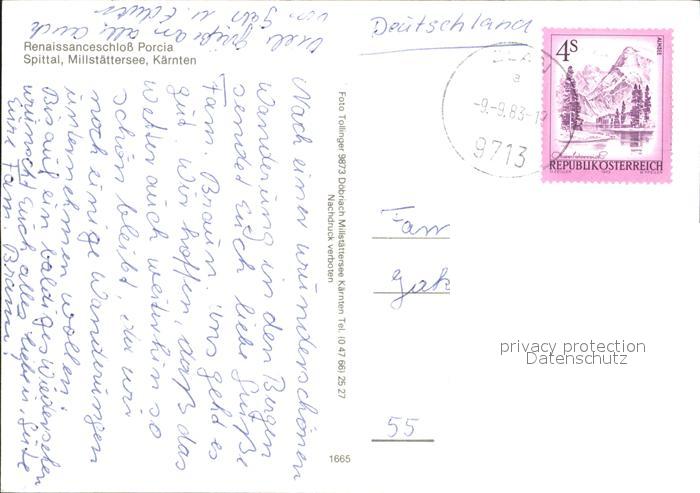 Renaissanceschloß Porcia
Spittal, Millstättersee, Kärnten
Nach einer wunderschönen
Wanderung in den Bergen
sendet Euch liebe Grüße
Fam. Braun. Uns geht es
gut. Wir hoffen, daß das
Wetter auch weiterhin so
schön bleibt, da wir
noch einige Wanderungen
unternehmen wollen.
Bis auf ein baldiges Wiedersehen
wünscht Euch alles Liebe u. Gute
Eure Fam. Braun
Viele Grüße an alle auch
von
Foto Tollinger 9873 Döbriach Millstättersee Kärnten Tel. (0 47 66) 25 27
Nachdruck verboten
1665
Deutschland
a
-9.-9.83-
9713
4S
ALMSEE
REPUBLIK ÖSTERREICH
Fam
Gak
55
privacy protection
Datenschutz